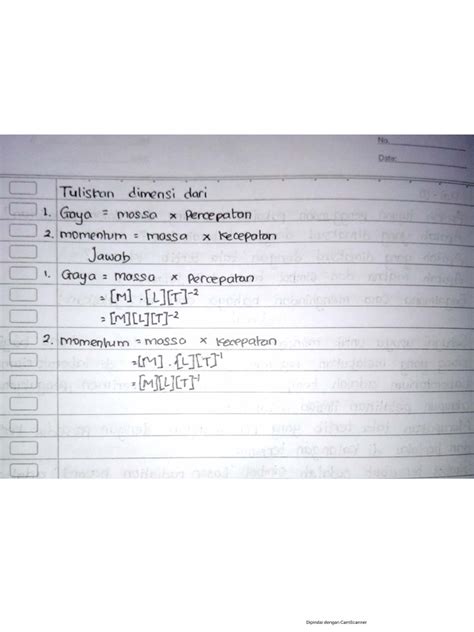 No.
Date:
Tuliskan dimensi dari
1. Gaya = massa x Percepatan
2. momentum = massa x Kecepatan
Jawab
1. Gaya = massa x percepatan
= [M] . [L][T]⁻²
= [M][L][T]⁻²
2. momentum = massa x kecepatan
= [M] . [L][T]⁻¹
= [M][L][T]⁻¹
Dipindai dengan CamScanner